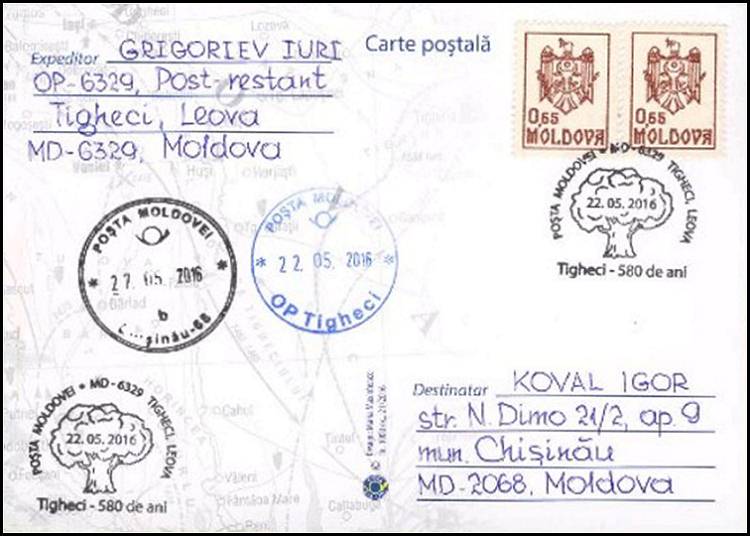 Expeditor GRIGORIEV IURI
OP-6329, Post-restant
Tigheci, Leova
MD-6329, Moldova
Carte poștală
0,65
MOLDOVA
0,65
MOLDOVA
POȘTA MOLDOVEI * MD-6329 TIGHECI, LEOVA
22.05.2016
Tigheci - 580 de ani
POȘTA MOLDOVEI
* 27. 05. 2016 *
b
Chișinău-68
POȘTA
* 22. 05. 2016 *
OP Tigheci
Destinatar KOVAL IGOR
str. N. Dimo 21/2, ap. 9
mun. Chișinău
MD-2068, Moldova
POȘTA MOLDOVEI * MD-6329 TIGHECI, LEOVA
22.05.2016
Tigheci - 580 de ani
Iași
Huși
Cahul
Văleni
Fântâna Mare